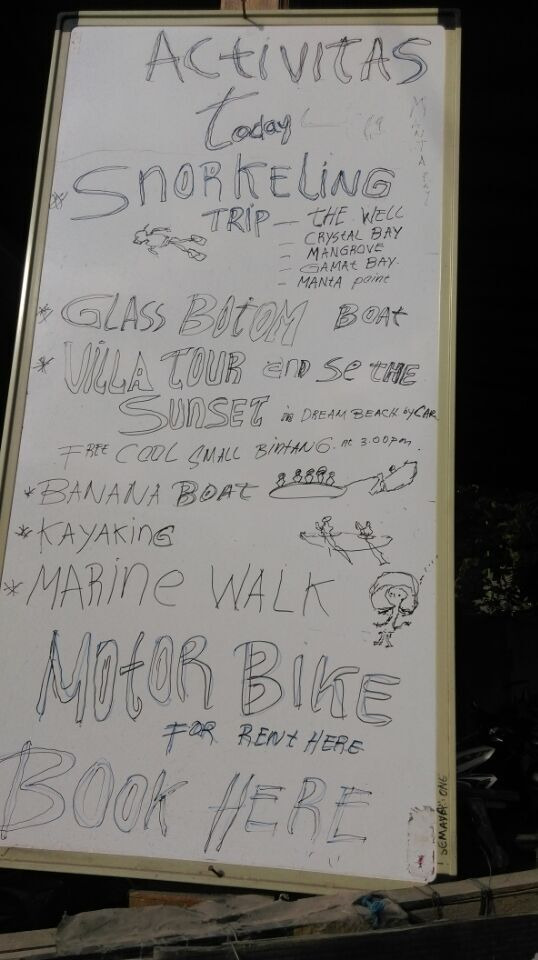 ACTIVITAS
today
MANTA
* SNORKELING
TRIP — THE WELL
— CRYSTAL BAY
— MANGROVE
— GAMAT BAY.
— MANTA point
* GLASS BOTOM BOAT
* VILLA TOUR and SE THE
SUNSET in DREAM BEACH by CAR
FREE COOL SMALL BINTANG. at 3.00pm
* BANANA BOAT
* KAYAKING
* MARINE WALK
MOTOR BIKE
FOR RENT HERE
BOOK HERE